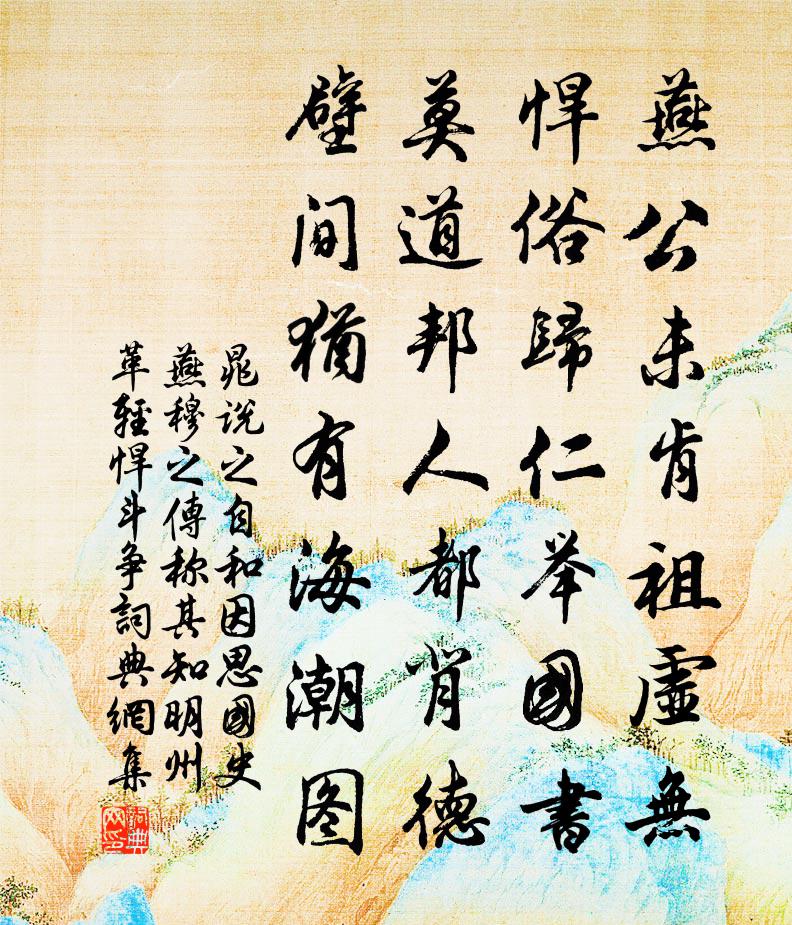 燕公未肯祖虚無
悍俗歸仁举國書
莫道邦人都背德
壁间犹有海潮图
晁说之自和因思國史
燕穆之傳称其知明州
革轻悍斗争詞典網集
詞典网印